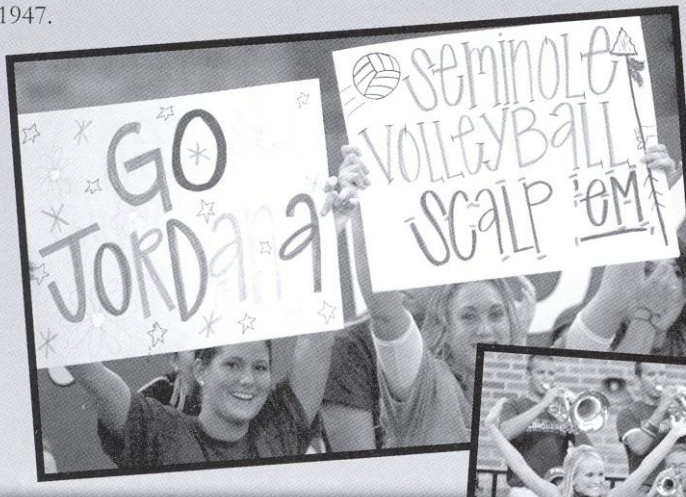 1947.
GO
JORDaNa
SEMINOLE
VOLLEYBaLL
SCaLP 'EM